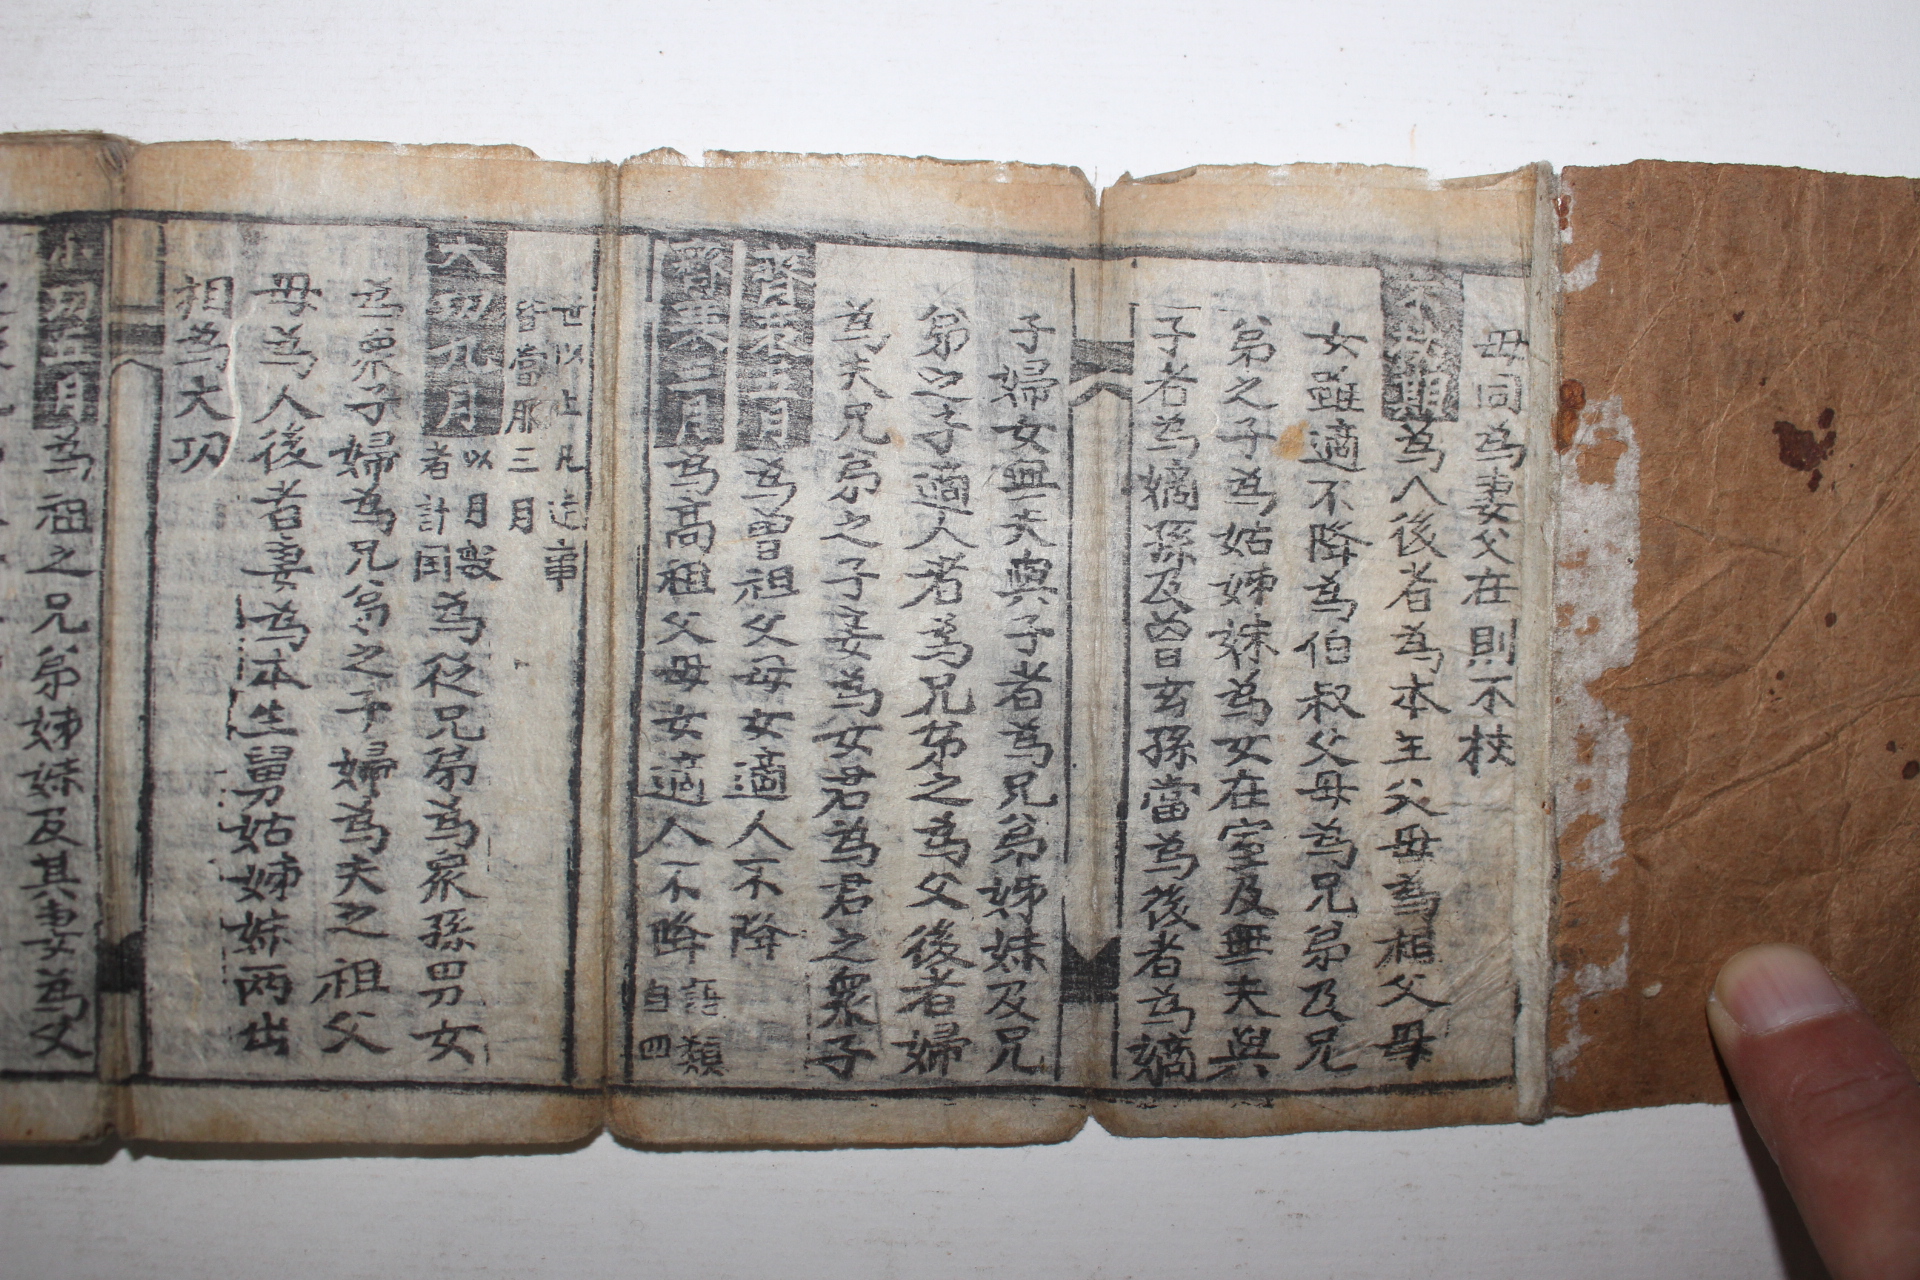 母同為妻父在則不杖
不杖期為人後者為本生父母為祖父母
女雖適不降為伯叔父母為兄弟及兄
弟之子為姑姊妹為女在室及無夫與
子者為嫡孫及曽玄孫當為後者為嫡
子婦女無夫與子者為兄弟姊妹及兄
弟之子適人者為兄弟之為父後者婦
為夫兄弟之子妾為女君為君之衆子
齊衰五月為曽祖父母女適人不降
齊衰三月為高祖父母女適人不降 語類
自四
世以上凡逮事
皆當服三月
大功九月 以月
者計閏 為從兄弟為衆孫男女
為衆子婦為兄弟之子婦為夫之祖父
母為人後者妻為本生舅姑姊妹兩出
相為大功
小功五月為祖之兄弟姊妹及其妻為父